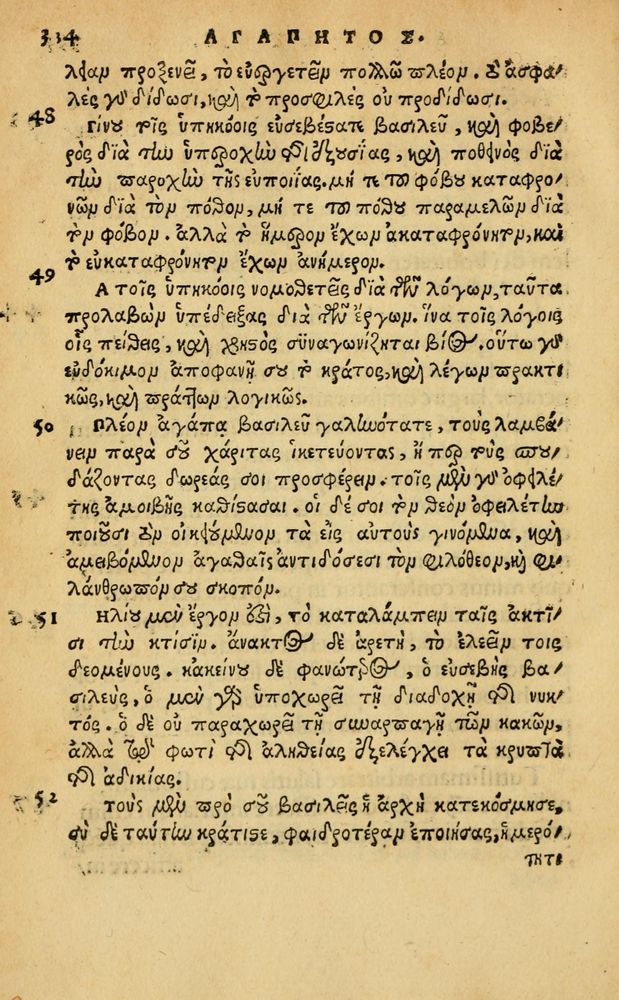 334 ΑΓΑΠΗΤΟΣ.
λείαν προξενεῖ, τὸ εὐεργετεῖν πολλῷ πλέον. ὃ ἀσφα/
λὲς γὰρ δίδωσι, καὶ τὸ προσφιλὲς οὐ προδίδωσι.
48 Γίνου τοῖς ὑπηκόοις εὐσεβέστατε βασιλεῦ, καὶ φοβε/
ρὸς διὰ τὴν ὑπεροχὴν τῆς ἐξουσίας, καὶ ποθεινὸς διὰ
τὴν παροχὴν τῆς εὐποιίας. μή τε τοῦ φόβου καταφρο/
νῶν διὰ τὸν πόθον, μή τε τοῦ πόθου παραμελῶν διὰ
τὸν φόβον. ἀλλὰ τὸ ἥμερον ἔχων ἀκαταφρόνητον, καὶ
τὸ εὐκαταφρόνητον ἔχων ἀνήμερον.
49 Ἃ τοῖς ὑπηκόοις νομοθετεῖς διὰ τῶν λόγων, ταῦτα
προλαβὼν ὑπέδειξας διὰ τῶν ἔργων. ἵνα τοῖς λόγοις
οἷς πείθεις, καὶ χρηστὸς συναγωνίζηται βίος. οὕτω γὰρ
εὐδόκιμον ἀποφανῇ σου τὸ κράτος, καὶ λέγων πρακτι
κῶς, καὶ πράττων λογικῶς.
50 Πλέον ἀγάπα βασιλεῦ γαληνότατε, τοὺς λαμβά/
νειν παρὰ σοῦ χάριτας ἱκετεύοντας, ἤπερ τοὺς σπου/
δάζοντας δωρεάς σοι προσφέρειν. τοῖς μὲν γὰρ ὀφειλέ/
της ἀμοιβῆς καθίστασαι. οἱ δέ σοι τὸν θεὸν ὀφειλέτην
ποιοῦσι τὸν οἰκειούμενον τὰ εἰς αὐτοὺς γινόμενα, καὶ
ἀμειβόμενον ἀγαθαῖς ἀντιδόσεσι τὸν φιλόθεον, καὶ φι/
λάνθρωπόν σου σκοπόν.
51 Ἡλίου μὲν ἔργον ἐστὶ, τὸ καταλάμπειν ταῖς ἀκτῖ/
σι τὴν κτίσιν. ἄνακτος δὲ ἀρετὴ, τὸ ἐλεεῖν τοὺς
δεομένους. κἀκείνου δὲ φανώτερος, ὁ εὐσεβὴς βα/
σιλεύς, ὁ μὲν γὰρ ὑποχωρεῖ τῇ διαδοχῇ τῆς νυκ/
τός. ὁ δὲ οὐ παραχωρεῖ τῇ συναρπαγῇ τῶν κακῶν,
ἀλλὰ τῷ φωτὶ τῆς ἀληθείας ἐξελέγχει τὰ κρυπτὰ
τῆς ἀδικίας.
52 Τοὺς μὲν πρὸ σοῦ βασιλεῖς ἡ ἀρχὴ κατεκόσμησε,
σὺ δὲ ταύτην κράτιστε, φαιδροτέραν ἐποίησας, ἡμερό/
τητι